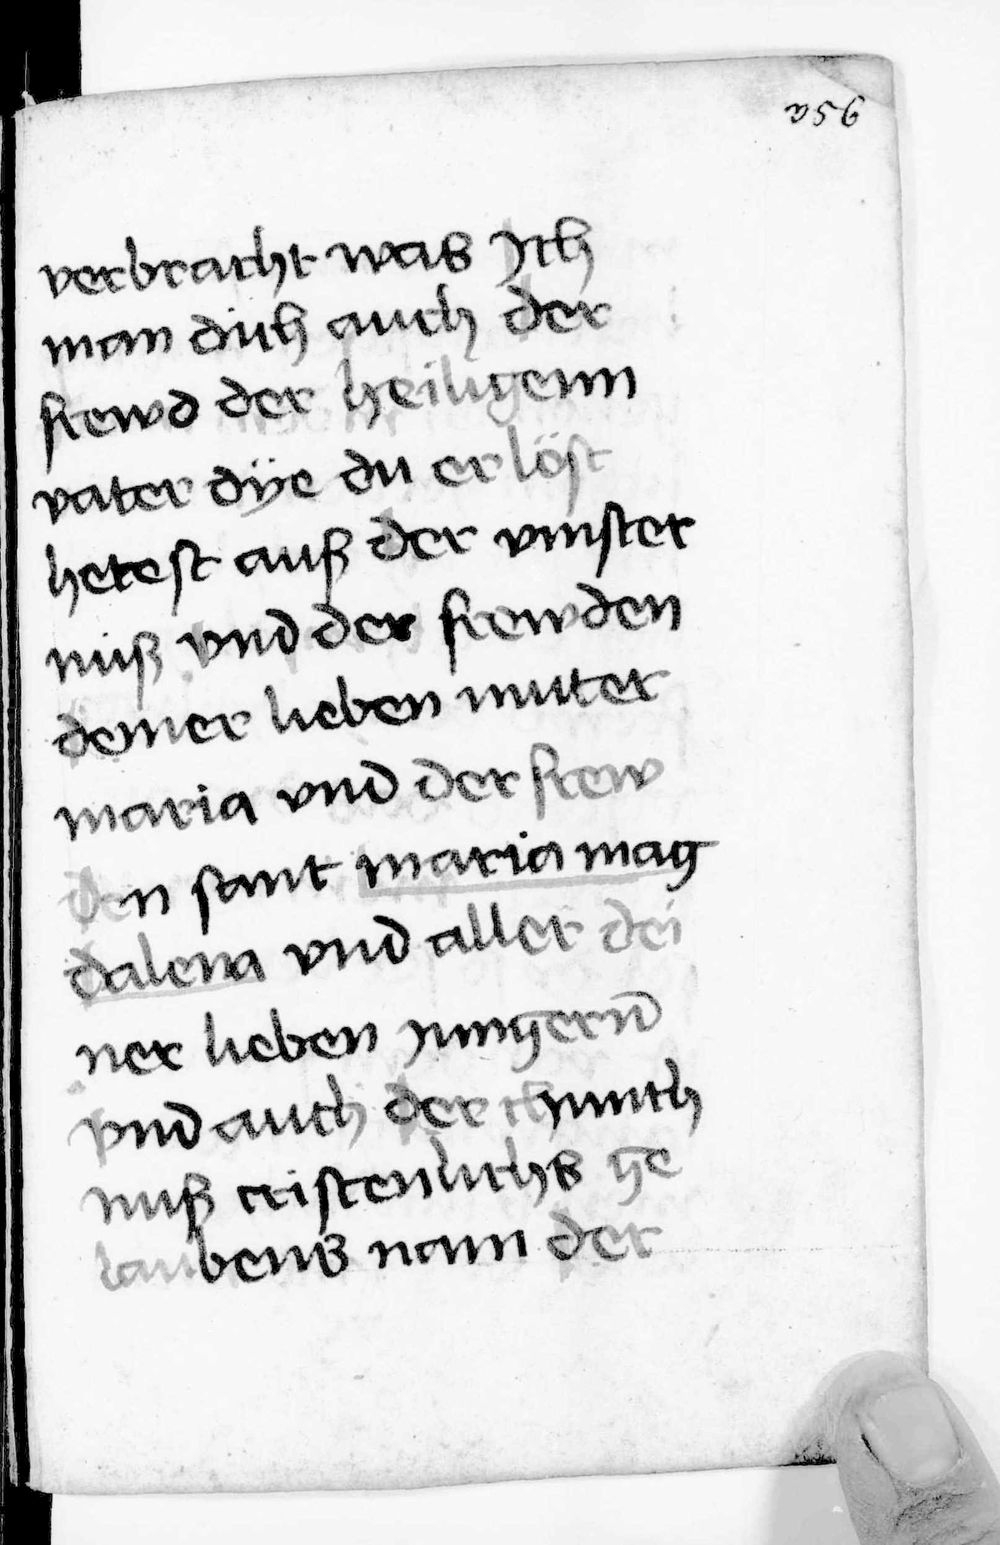 956
verbracht was Jch
man dich auch der
frewd der heiligenn
vater dÿe du erlöst
hetest auß der vinster
niß vnd der frewden
deiner lieben muter
maria vnd der frew
den sant maria mag
dalena vnd aller dei
ner lieben Jungern̄
vnd auch der
nuß cristenlichs ge
laubens nam der